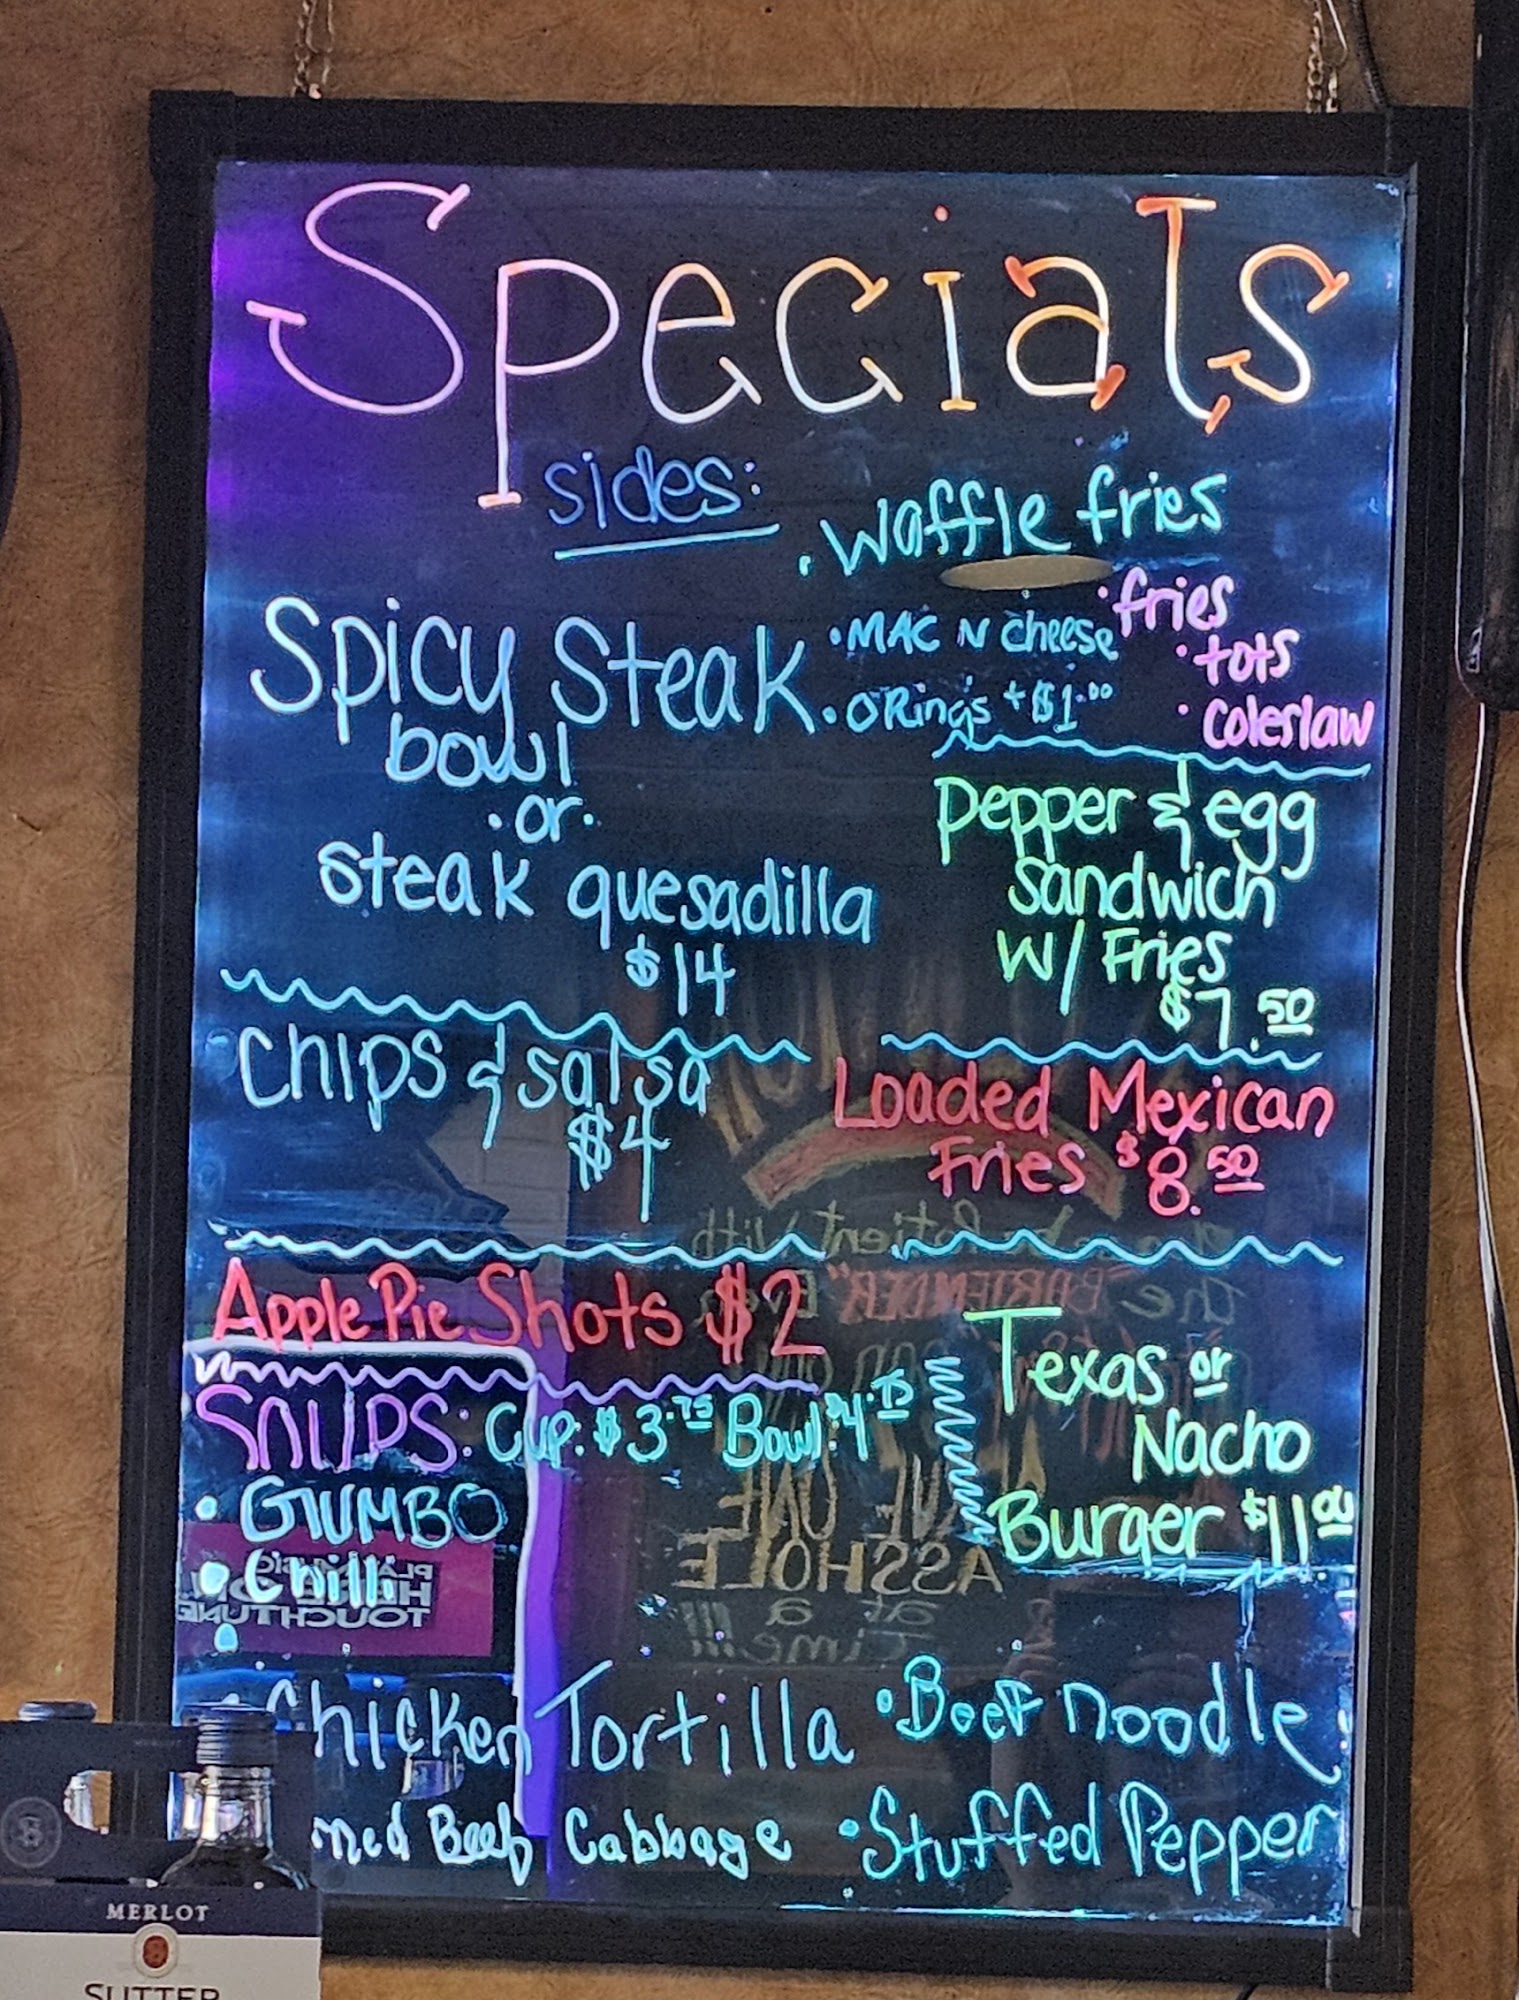 Specials
sides:
• Waffle fries
• MAC N cheese
• O Rings + $1.00
• fries
• tots
• Coleslaw
Spicy Steak
bowl
• or •
steak quesadilla
$14
Pepper & egg
Sandwich
W/ Fries
$7.50
Chips & salsa
$4
Loaded Mexican
Fries $8.50
Apple Pie Shots $2
Texas or
Nacho
Burger $11.00
SOUPS: Cup: $3.75 Bowl: $4.75
• GUMBO
• Chilli
Chicken Tortilla
• Beef noodle
Beef Cabbage
• Stuffed Pepper
Patient With
the "BARTENDER" Even
ONE
ASSHOLE
at a
time!!!
TOUCHTUNES
MERLOT
SUTTER